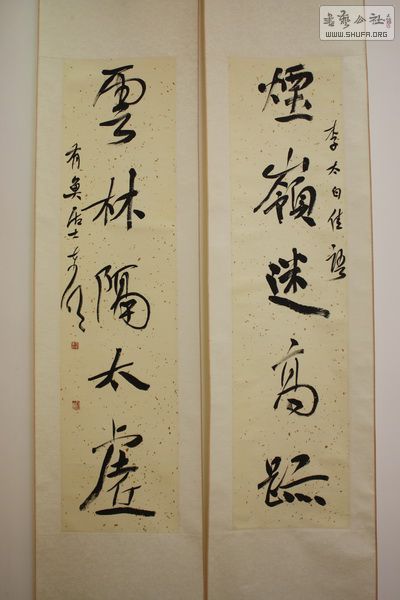 書藝公社
WWW.SHUFA.ORG
李太白佳語
煙嶺迷高跡
雲林隔太虛
有魚居士